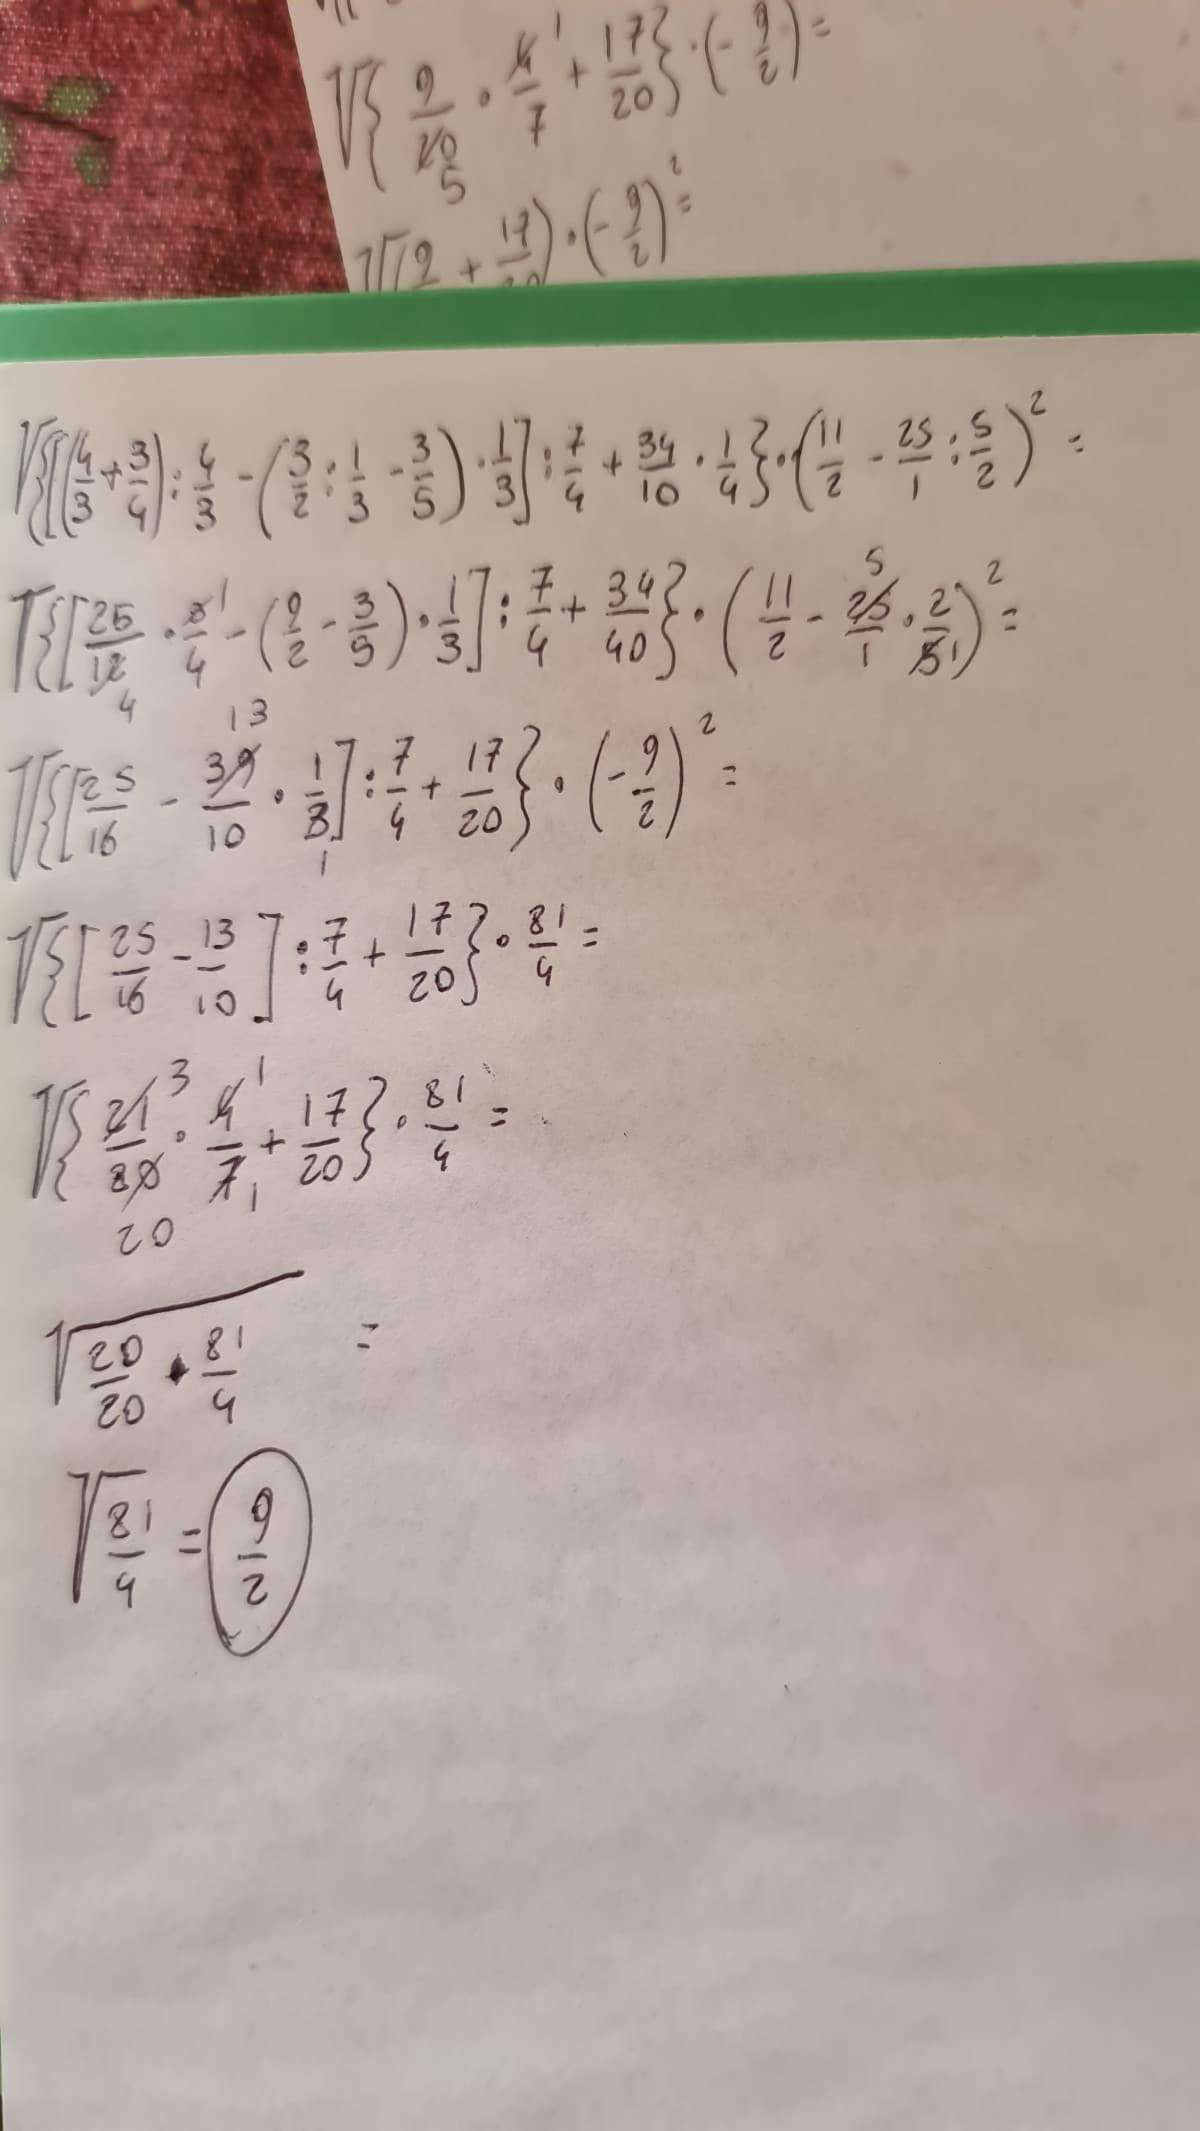 √{ 9/20 5 · 4/7 1 + 17/20 } · (- 9/2) =
√( 9 + 17/20 ) · (- 9/2)² =
√{[(4/3 + 3/4) : 4/3 - (3/2 : 1/3 - 3/5) · 1/3] : 7/4 + 34/10 · 1/4} · (11/2 - 25/1 : 5/2)² =
√{[25/12 4 · 3/4 1 - (9/2 - 3/5) · 1/3] : 7/4 + 34/40} · (11/2 - 25/1 5 · 2/5 1)² =
√{[25/16 - 39/10 13 · 1/3 1] : 7/4 + 17/20} · (- 9/2)² =
√{[25/16 - 13/10] : 7/4 + 17/20} · 81/4 =
√{21/80 3 20 · 4/7 1 1 + 17/20} · 81/4 =
√20/20 · 81/4 =
√81/4 = 9/2